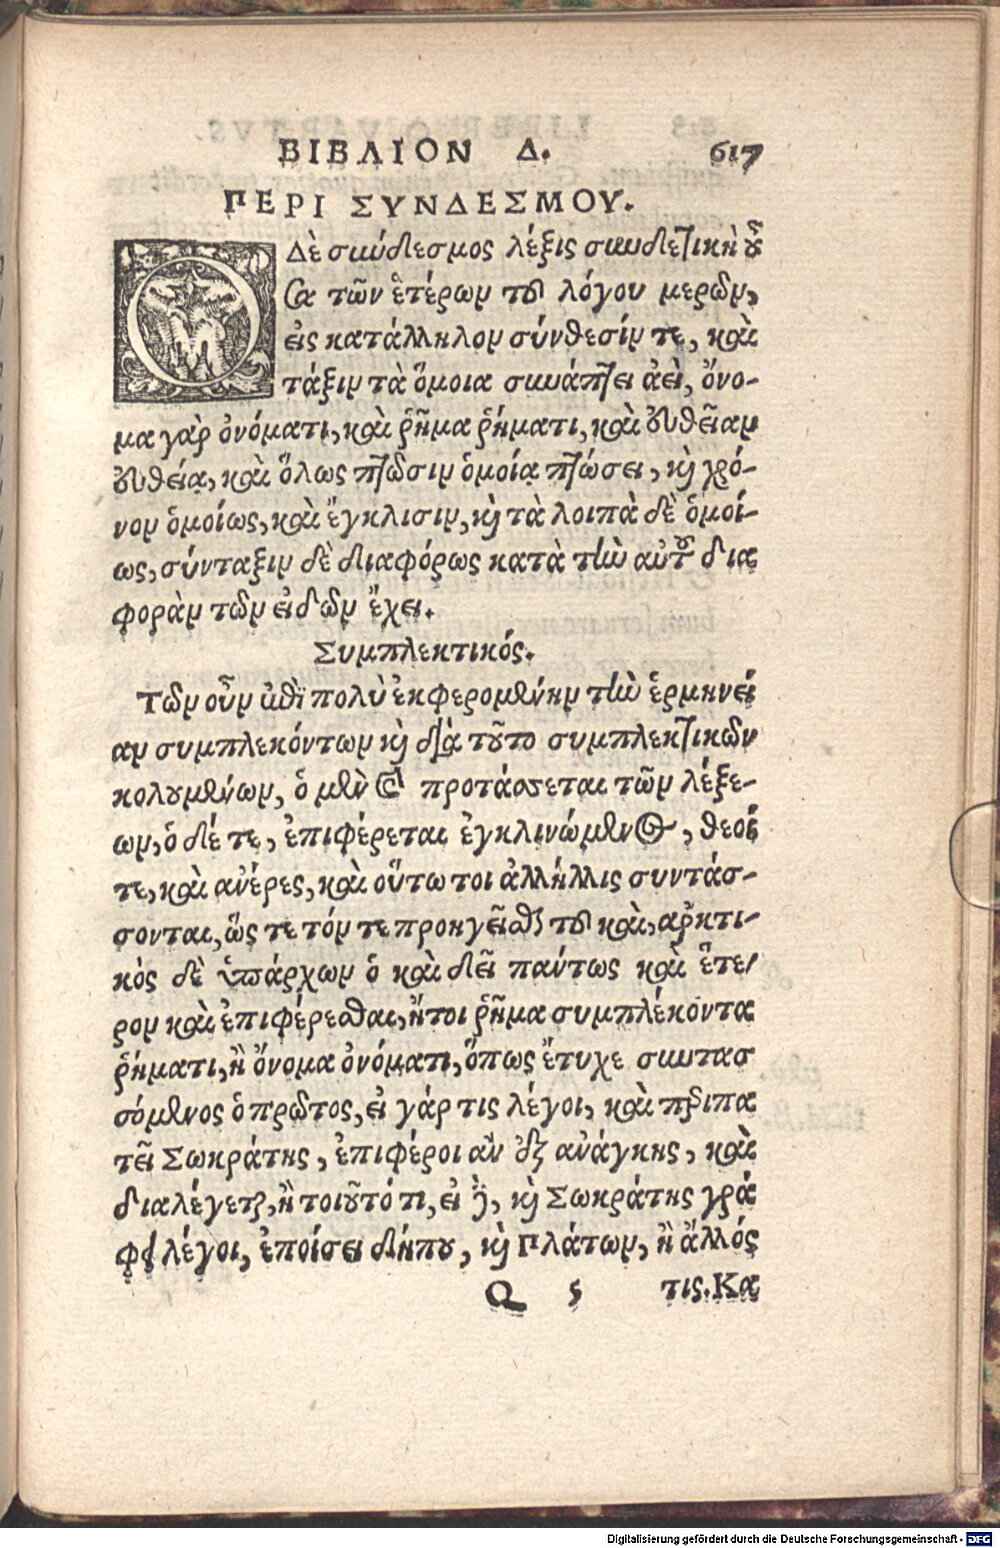 ΒΙΒΛΙΟΝ Δ. 617
ΠΕΡΙ ΣΥΝΔΕΣΜΟΥ.
Ο Δὲ σύνδεσμος λέξις συνδετικὴ οὖ
σα τῶν ἑτέρων τοῦ λόγου μερῶν,
εἰς κατάλληλον σύνθεσίν τε, καὶ
τάξιν τὰ ὅμοια συνάπτει ἀεὶ, ὄνο-
μα γὰρ ὀνόματι, καὶ ῥῆμα ῥήματι, καὶ εὐθεῖαν
εὐθείᾳ, καὶ ὅλως πτῶσιν ὁμοίᾳ πτώσει, καὶ χρό-
νον ὁμοίως, καὶ ἔγκλισιν, καὶ τὰ λοιπὰ δὲ ὁμοί-
ως, σύνταξιν δὲ διαφόρως κατὰ τὴν αὐτοῦ δια
φορὰν τῶν εἰδῶν ἔχει.
Συμπλεκτικός.
Τῶν οὖν ἐπὶ πολὺ ἐκφερομένην τὴν ἑρμηνεί
αν συμπλεκόντων καὶ διὰ τοῦτο συμπλεκτικῶν
κολουμένων, ὁ μὲν καὶ προτάσσεται τῶν λέξε-
ων, ὁ δέ τε, ἐπιφέρεται ἐγκλινώμενος, θεοί
τε, καὶ ἀνέρες, καὶ οὕτω τοι ἀλλήλοις συντάσ-
σονται, ὥς τε τόν τε προηγεῖσθαι τοῦ καὶ, ἀρκτι-
κὸς δὲ ὑπάρχων ὁ καὶ δεῖ παντως καὶ ἕτε-
ρον καὶ ἐπιφέρεσθαι, ἤτοι ῥῆμα συμπλέκοντα
ῥήματι, ἢ ὄνομα ὀνόματι, ὅπως ἔτυχε συντασ
σόμενος ὁ πρῶτος, εἰ γάρ τις λέγοι, καὶ περιπα
τεῖ Σωκράτης, ἐπιφέροι ἂν ἐξ ἀνάγκης, καὶ
διαλέγεται, ἢ τοιοῦτό τι, εἰ δὲ, καὶ Σωκράτης γρά
φει λέγοι, ἐποίσει δήπου, καὶ Πλάτων, ἢ ἄλλός
Q 5 τις. Κα
Digitalisierung gefördert durch die Deutsche Forschungsgemeinschaft - DFG